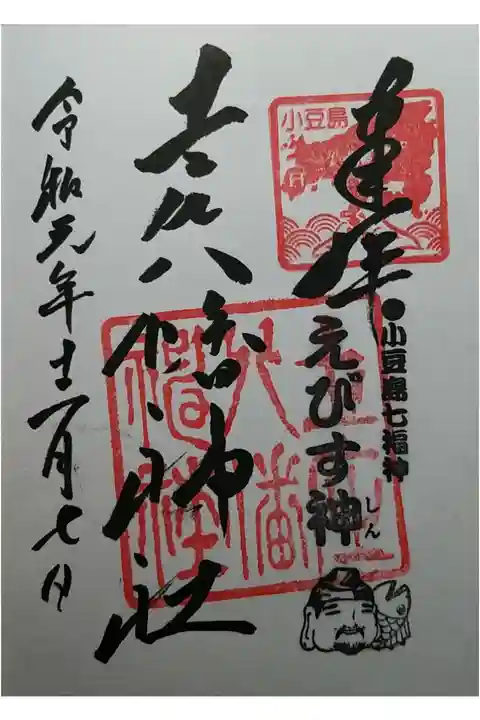 小豆島
奉拝
●小豆島七福神
えびす神
しん
土庄八幡神社
令和元年十二月七日